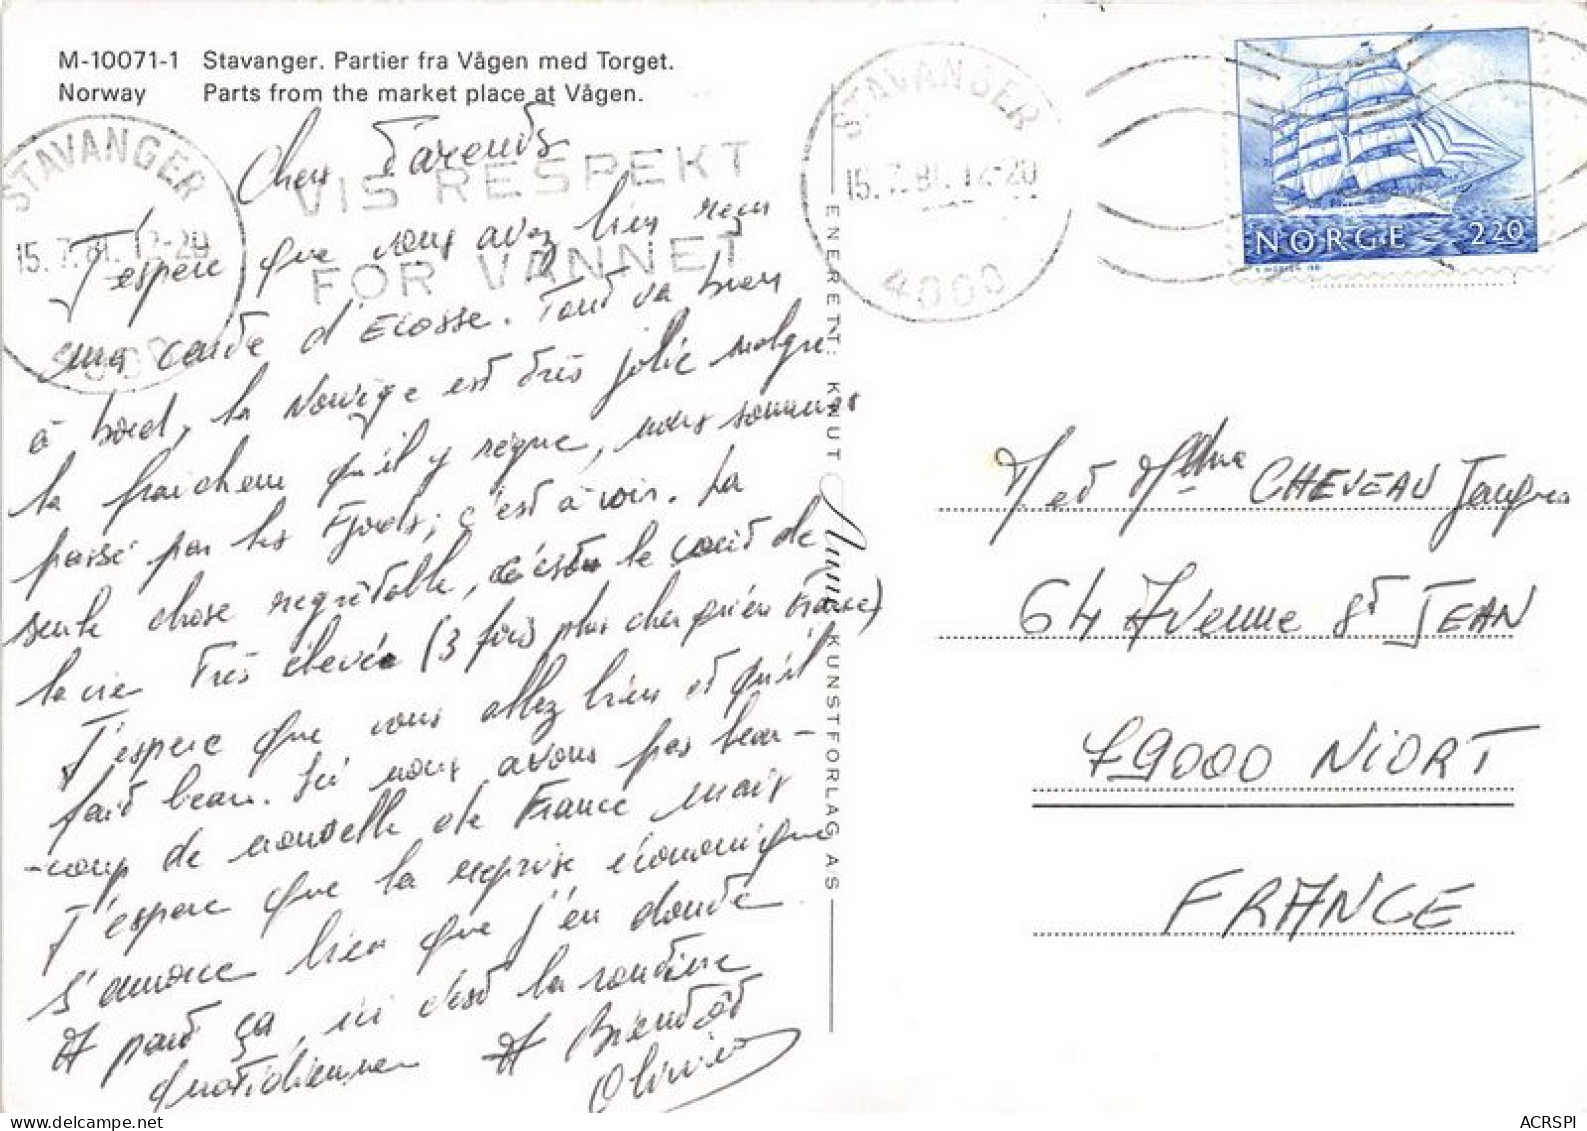 M-10071-1 Stavanger. Partier fra Vågen med Torget.
Norway Parts from the market place at Vågen.
STAVANGER
15.7.81.12-20
VIS RESPEKT
FOR VANNET
STAVANGER
15.7.81.12-20
4000
NORGE 220
Chers Parents
J'espère que vous avez bien reçu
ma carte d'Ecosse. Tout va bien
à bord, la Norvège est très jolie malgré
la fraicheur qu'il y règne, nous sommes
passé par les Fjords, c'est à voir. La
seule chose regrêtable, c'est le coût de
la vie Très élevée (3 fois plus cher qu'en France)
J'espère que vous allez bien et qu'il
fait beau. Ici nous avons pas beau-
-coup de nouvelle de France mais
J'espère que la reprise économique
s'annonce bien que j'en doute
A part ça, ici c'est la routine
quotidienne A Bientôt
Olivier
ENERETT: KNUT Aune KUNSTFORLAG A/S
M et Mme CHEVEAU Jacques
64 Avenue St JEAN
79000 NIORT
FRANCE
ACRSPI